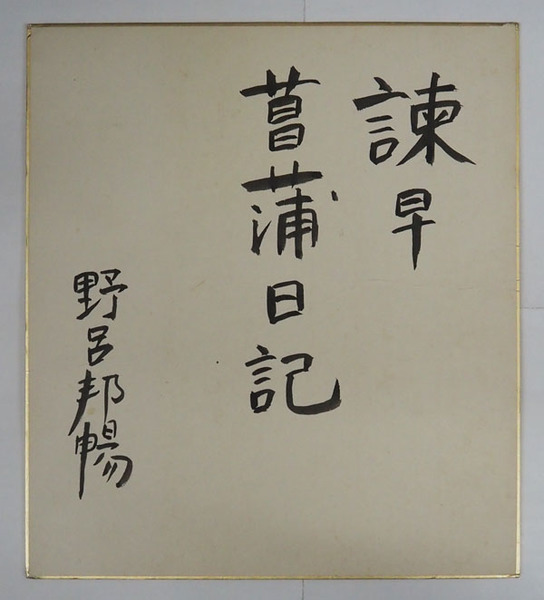 諫早
菖蒲日記
野呂邦暢